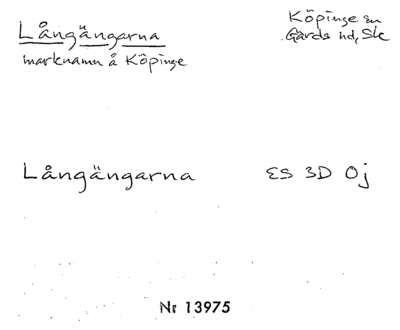 Långängarna
marknamn å Köpinge
Köpinge sn
Gärds hd, Sk
Långängarna ES 3D Oj
Nr 13975